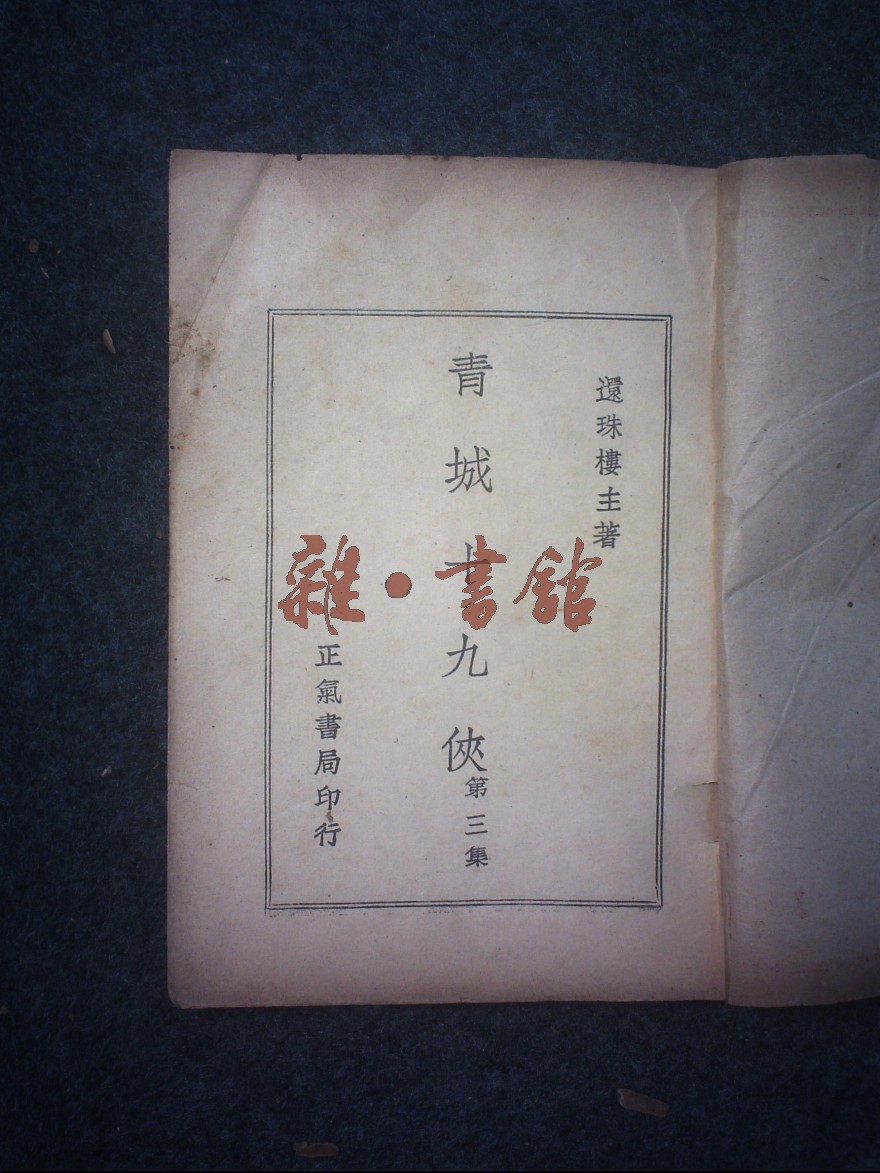 還珠樓主著
青城十九俠
第三集
正氣書局印行
雜·書館